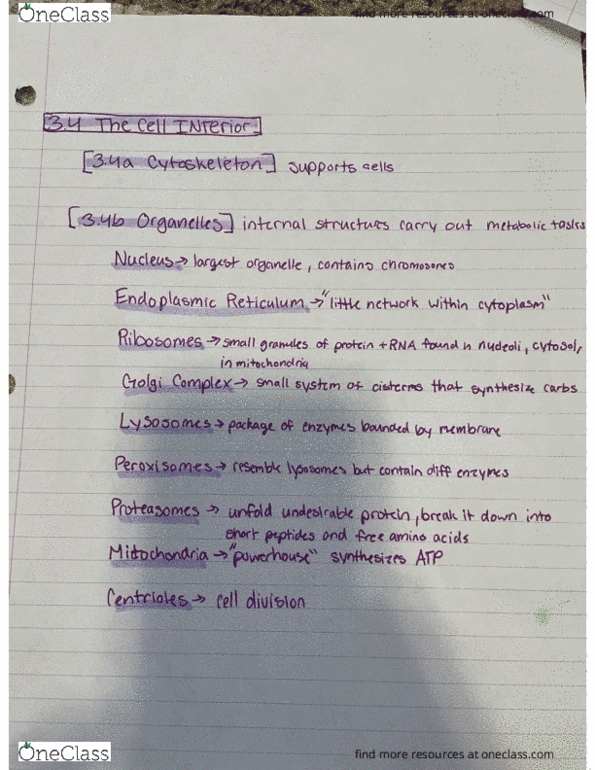 OneClass
find more resources at oneclass.com
3.4 The Cell INterior
[3.4a Cytoskeleton] supports cells
[3.4b Organelles] internal structures carry out metabolic tasks
Nucleus → largest organelle, contains chromosomes
Endoplasmic Reticulum → "little network within cytoplasm"
Ribosomes → small granules of protein + RNA found in nucleoli, cytosol,
in mitochondria
Golgi Complex → small system of cisterns that synthesize carbs
Lysosomes → package of enzymes bounded by membrane
Peroxisomes → resemble lysosomes but contain diff enzymes
Proteasomes → unfold undesirable protein, break it down into
short peptides and free amino acids
Mitochondria → "powerhouse" synthesizes ATP
Centrioles → cell division
OneClass
find more resources at oneclass.com